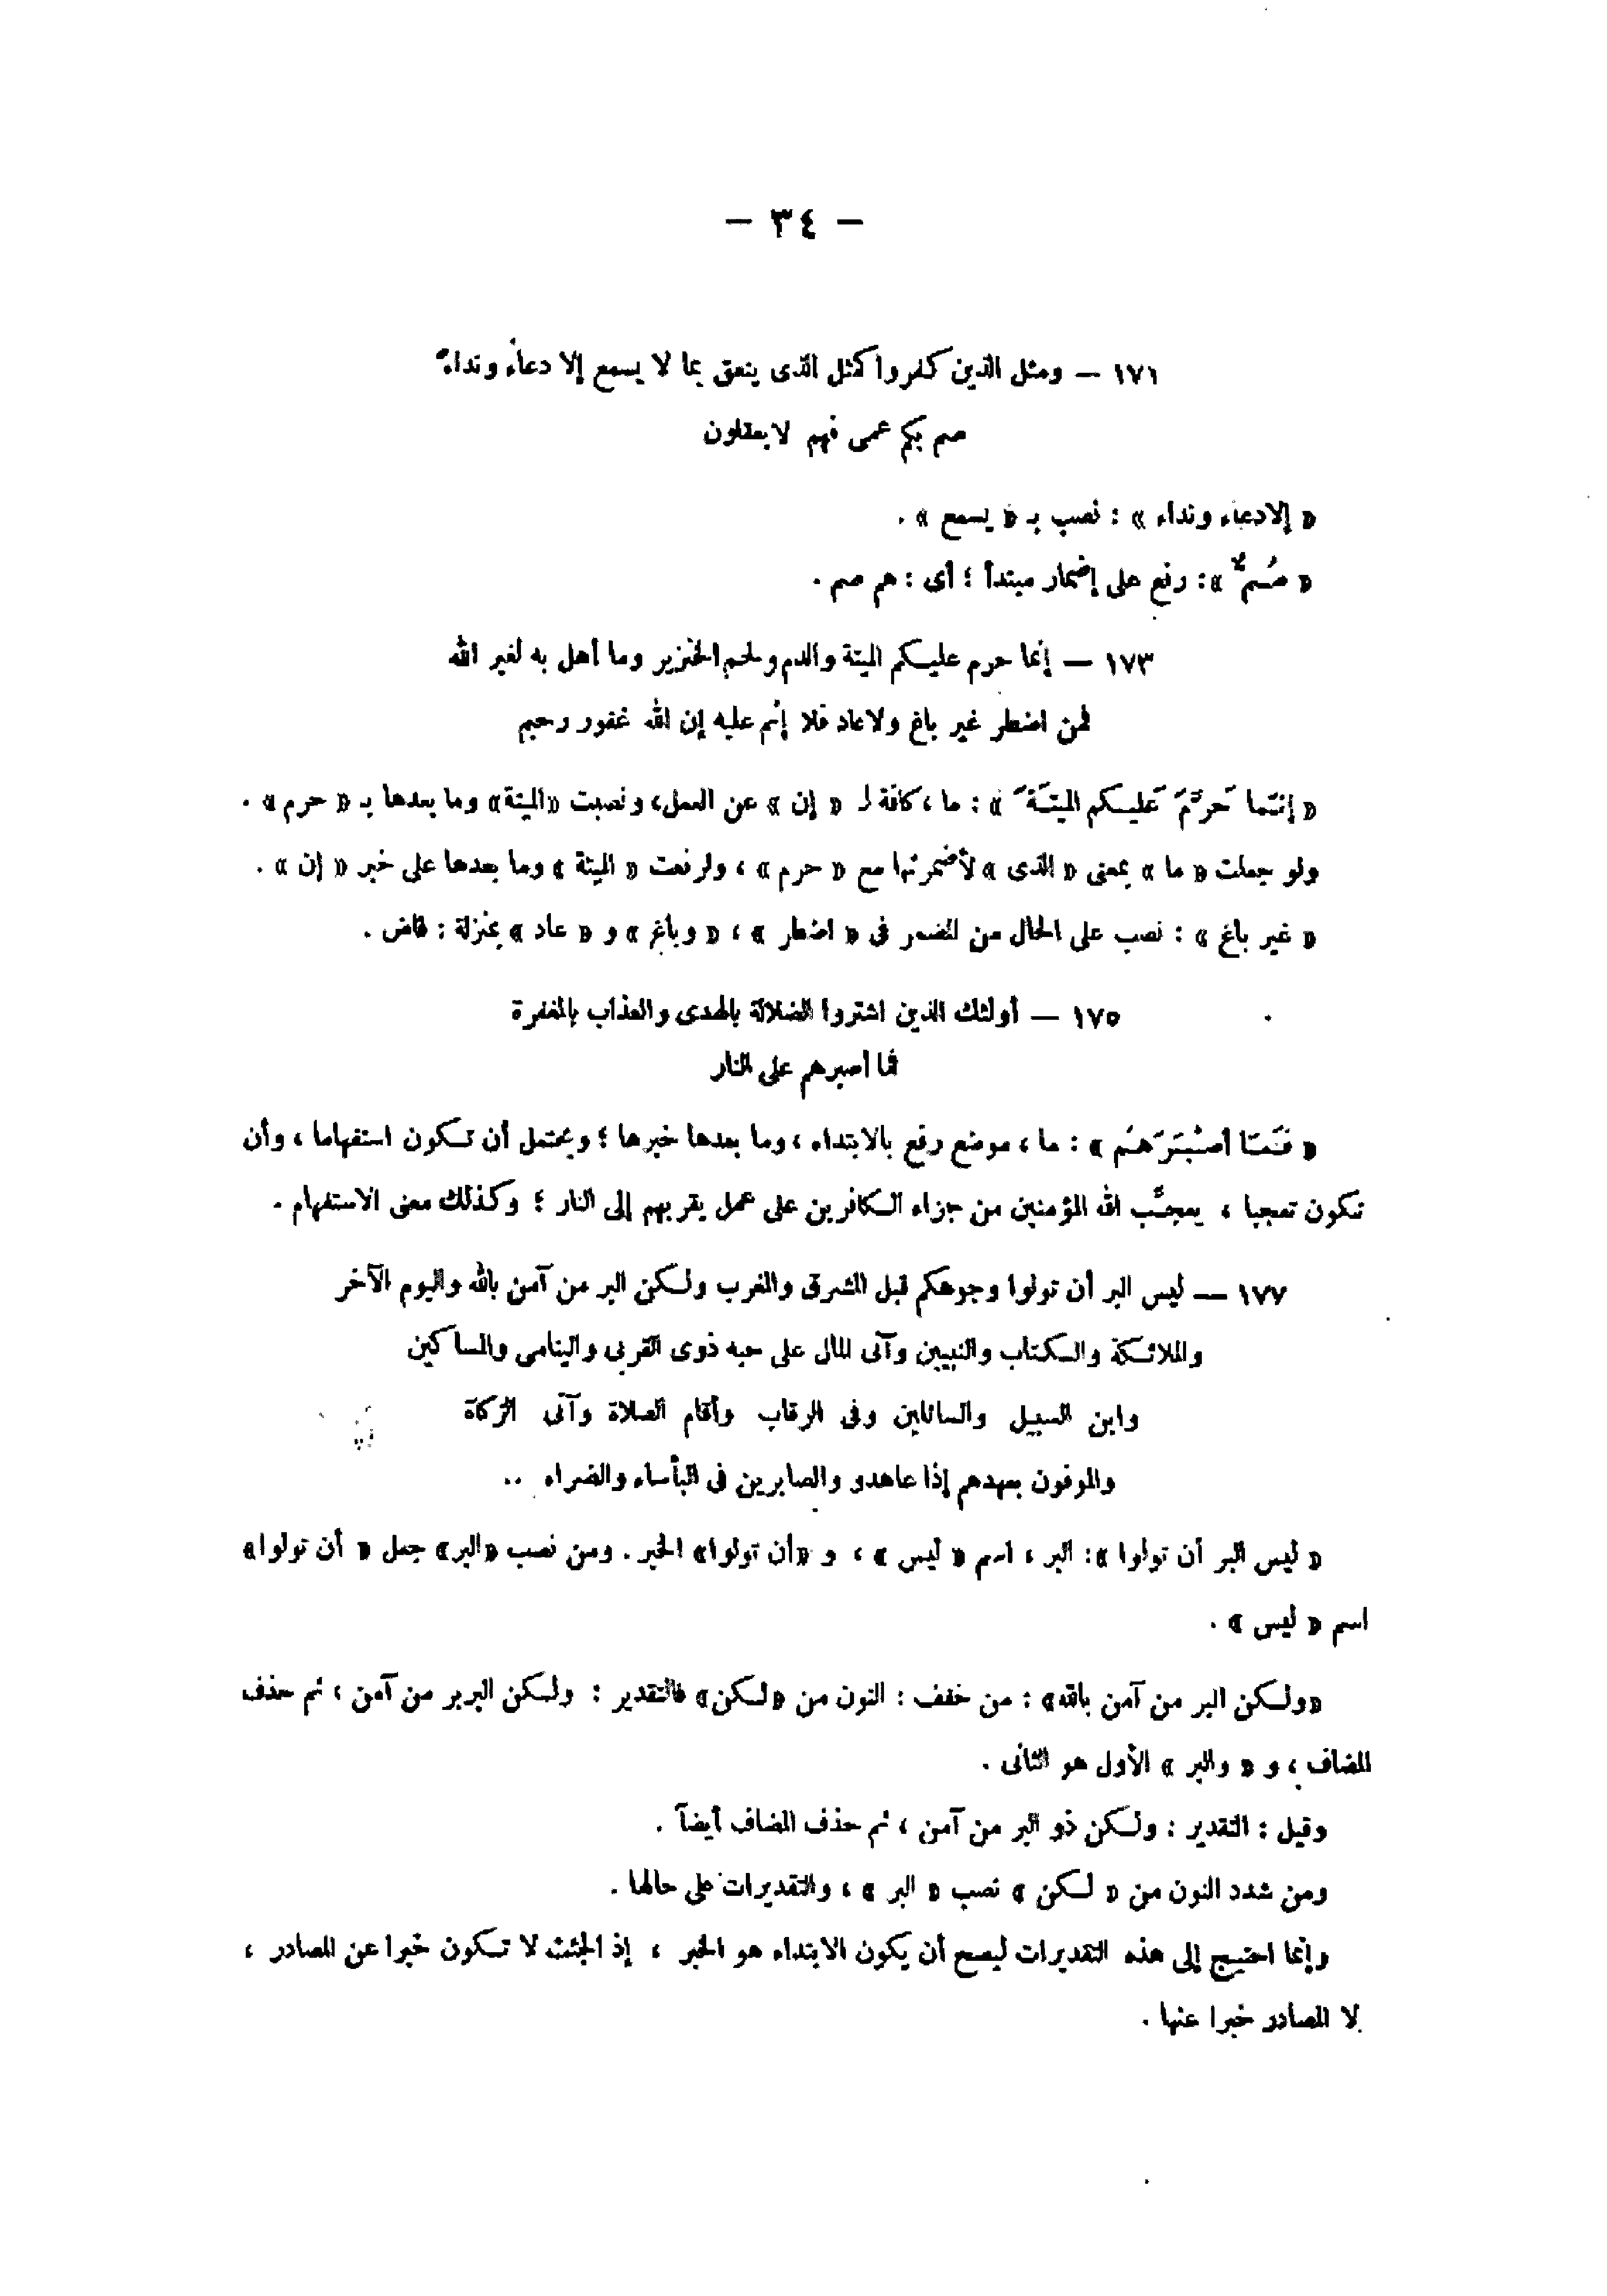 — ٣٤ —
١٧١ — ومثل الذين كفروا كمثل الذى ينعق بما لا يسمع إلا دعاءً ونداءً
صم بكم عمى فهم لا يعقلون
« إلا دعاء ونداء » : نصب بـ « يسمع » .
« صُمٌّ » : رفع على إضمار مبتدأ ؛ أى : هم صم .
١٧٣ — إنما حرم عليكم الميتة والدم ولحم الخنزير وما أهل به لغير الله
فمن اضطر غير باغ ولا عاد فلا إثم عليه إن الله غفور رحيم
« إنّما حَرَّمَ عَليكم الميتَةَ » : ما ، كافة لـ « إن » عن العمل، ونصبت «الميتة» وما بعدها بـ « حرم » .
ولو جعلت « ما » بمعنى « الذى » لأضمرتها مع « حرم » ، ولرفعت « الميتة » وما بعدها على خبر « إن » .
« غير باغ » : نصب على الحال من المضمر فى « اضطر » ، « وباغ » و « عاد » بمنزلة : قاض .
١٧٥ — أولئك الذين اشتروا الضلالة بالهدى والعذاب بالمغفرة
فما أصبرهم على النار
« فَمَا أصْبَرَهُم » : ما ، موضع رفع بالابتداء ، وما بعدها خبرها ؛ ويحتمل أن تكون استفهاما ، وأن
تكون تعجبا ، يعجِّب الله المؤمنين من جزاء الكافرين على عمل يقربهم إلى النار ؛ وكذلك معنى الاستفهام .
١٧٧ — ليس البر أن تولوا وجوهكم قبل المشرق والمغرب ولكن البر من آمن بالله واليوم الآخر
والملائكة والكتاب والنبيين وآتى المال على حبه ذوى القربى واليتامى والمساكين
وابن السبيل والسائلين وفى الرقاب وأقام الصلاة وآتى الزكاة
والموفون بعهدهم إذا عاهدو والصابرين فى البأساء والضراء ..
« ليس البر أن تولوا »: البر ، اسم « ليس » ، و «أن تولوا» الخبر . ومن نصب «البر» جعل « أن تولوا»
اسم « ليس » .
«ولكن البر من آمن بالله» : من خفف : النون من «لكن» فالتقدير : ولكن البربر من آمن ، ثم حذف
المضاف ، و « والبر » الأول هو الثانى .
وقيل : التقدير : ولكن ذو البر من آمن ، ثم حذف المضاف أيضاً .
ومن شدد النون من « لكن » نصب « البر » ، والتقديرات على حالها .
وإنما احتيج إلى هذه التقديرات ليصح أن يكون الابتداء هو الخبر ، إذ الجثث لا تكون خبرا عن المصادر ،
لا المصادر خبرا عنها .